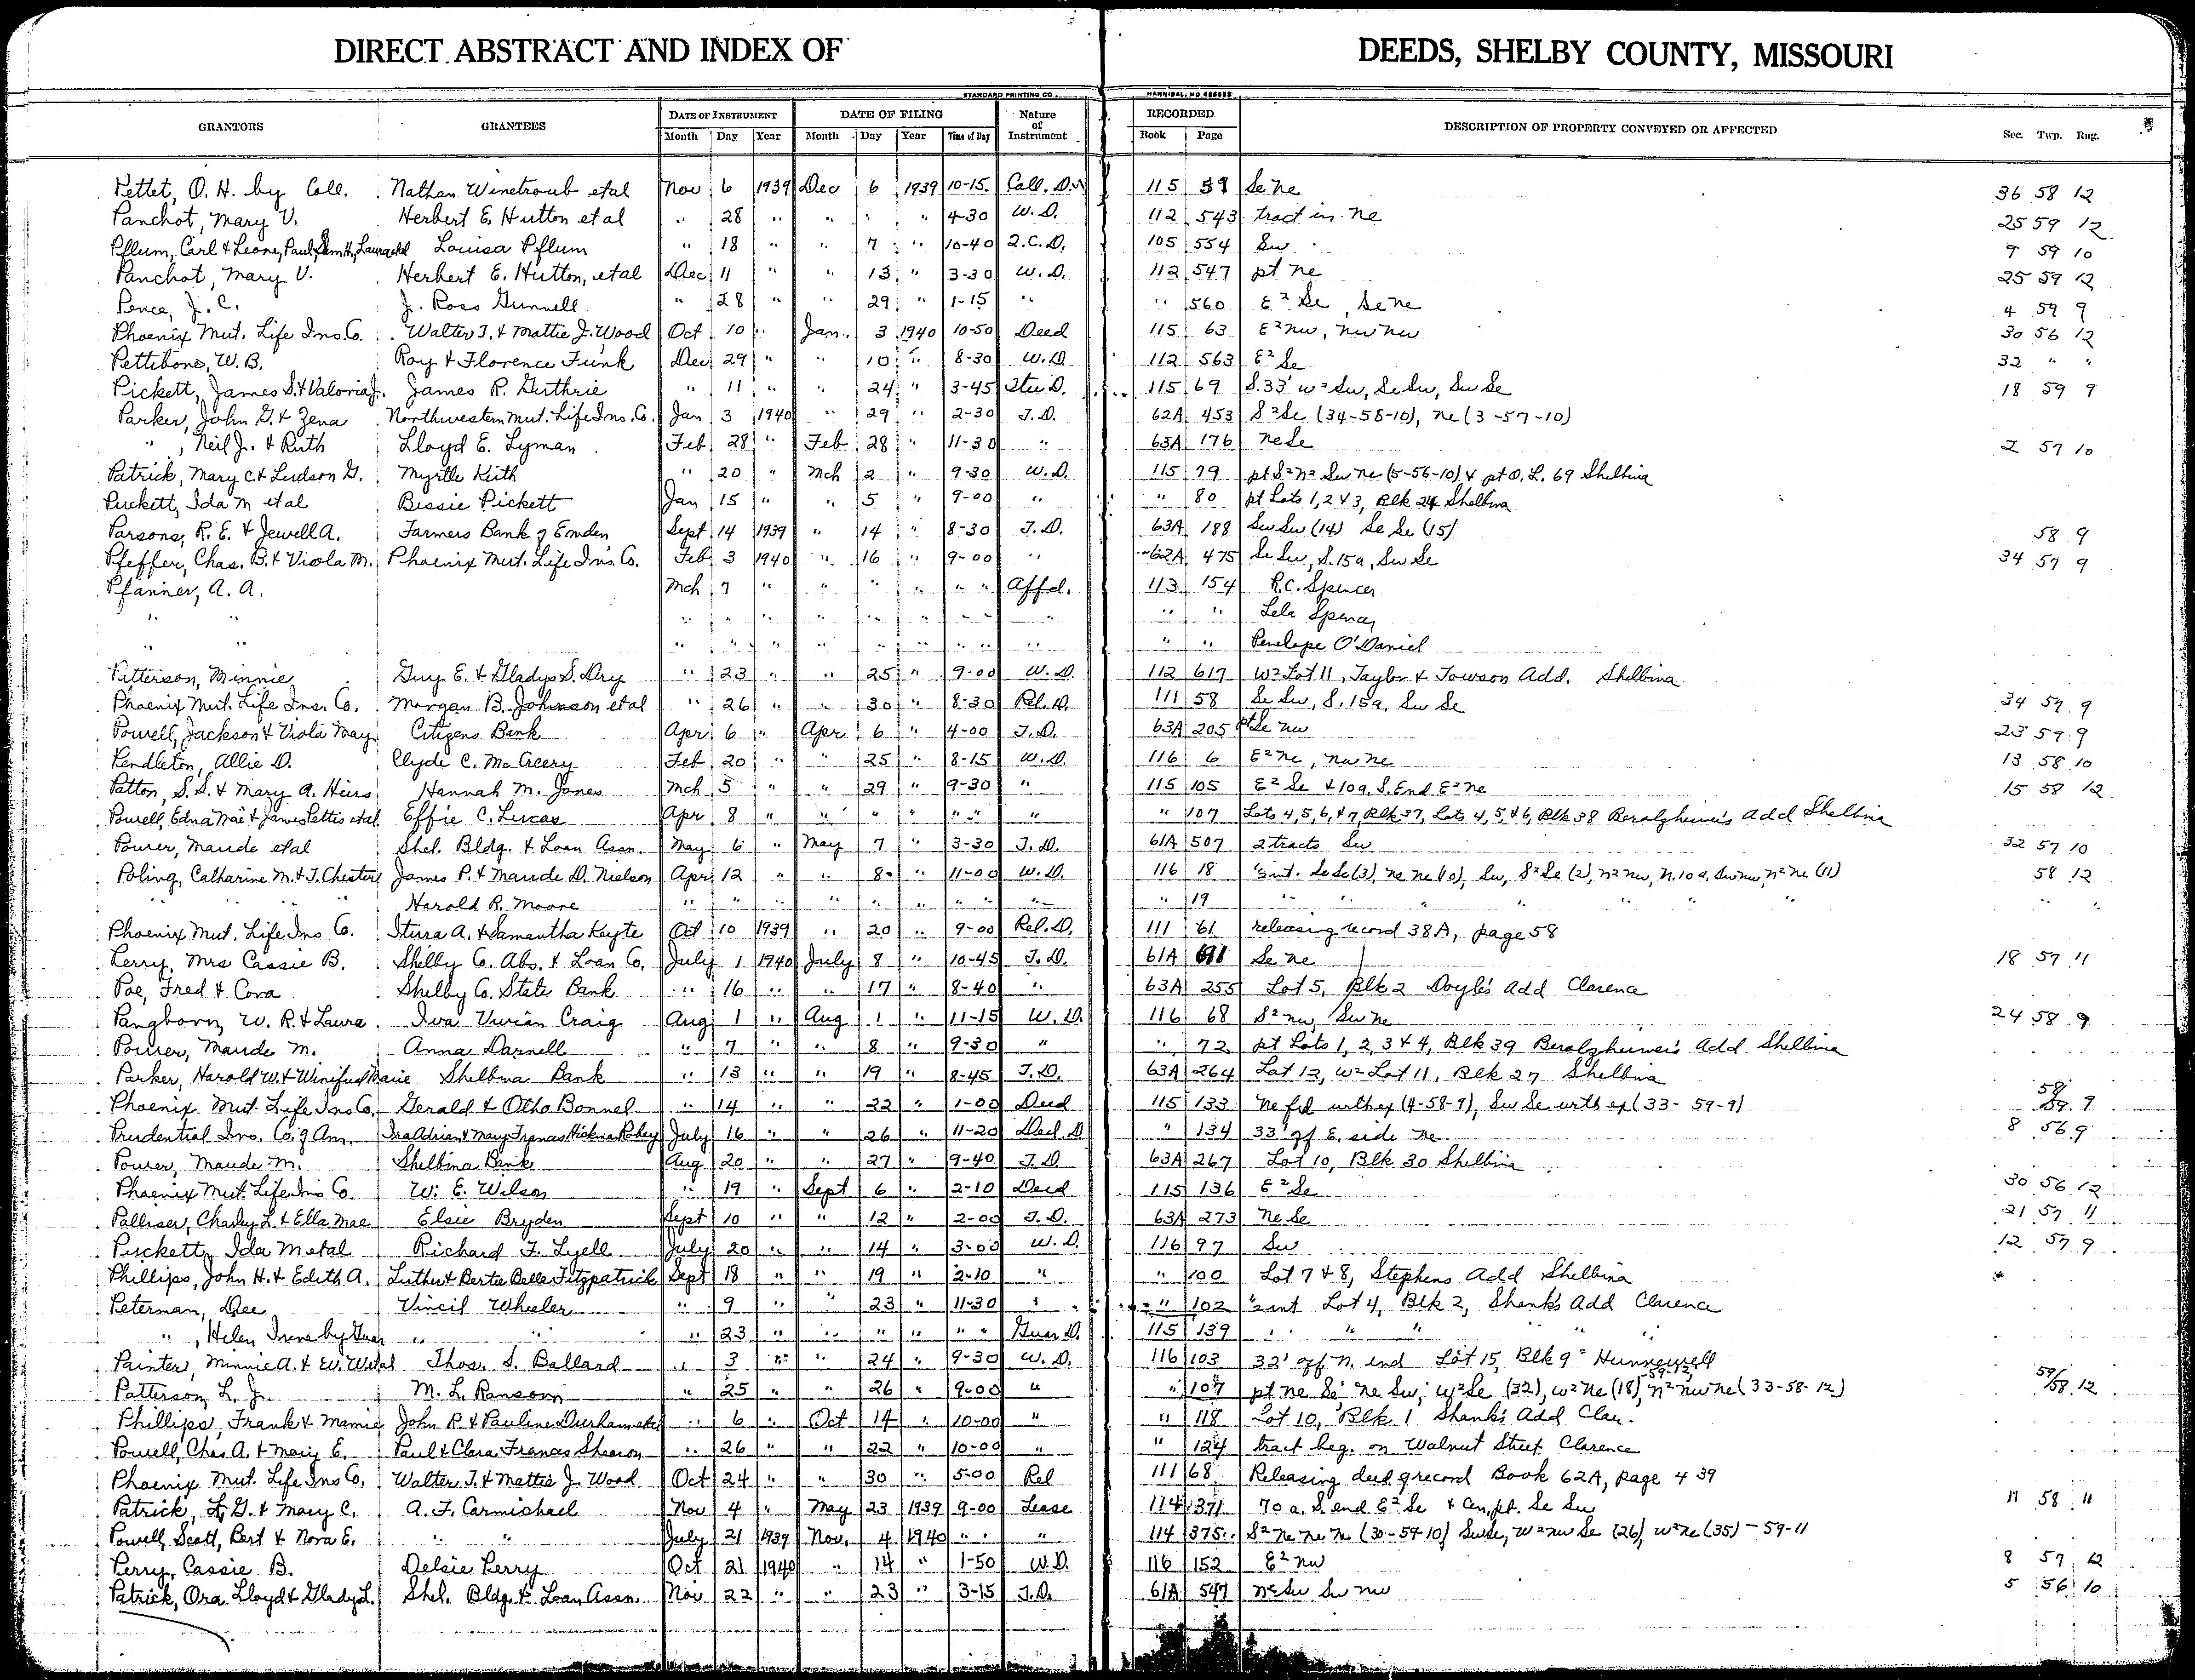 DIRECT ABSTRACT AND INDEX OF DEEDS, SHELBY COUNTY, MISSOURI
STANDARD PRINTING CO. HANNIBAL, MO
GRANTORS GRANTEES DATE OF INSTRUMENT DATE OF FILING Nature of Instrument RECORDED DESCRIPTION OF PROPERTY CONVEYED OR AFFECTED Sec. Twp. Rng.
Month Day Year Month Day Year Time of Day Book Page
Pettet, O. H. by Coll. Nathan Winetroub etal Nov 6 1939 Dec 6 1939 10-15 Coll. D. 115 59 Se Ne 36 58 12
Panchot, Mary V. Herbert E. Hutton et al " 28 " " " " 4-30 W. D. 112 543 tract in Ne 25 59 12
Pflum, Carl & Leone, Paul, Louisa Pflum " 18 " " 7 " 10-40 Q.C.D. 105 554 Sw 9 59 10
Panchot, Mary V. Herbert E. Hutton, etal Dec 11 " " 13 " 3-30 W. D. 112 547 pt Ne 25 59 12
Pence, J. C. J. Ross Gunnell " 28 " " 29 " 1-15 " " 560 E² Se, Se Ne 4 59 9
Phoenix Mut. Life Ins. Co. Walter T. & Mattie J. Wood Oct 10 " Jan. 3 1940 10-50 Deed 115 63 E² nw, nw nw 30 56 12
Pettibone, W. B. Roy & Florence Funk Dec 29 " " 10 " 8-30 W. D. 112 563 E² Se 32 " "
Pickett, James S. & Valoria J. James R. Guthrie " 11 " " 24 " 3-45 D. 115 69 S. 33' w² Sw, Se Sw, Sw Se 18 59 9
Parker, John G. & Zena Northwestern Mut. Life Ins. Co. Jan 3 1940 " 29 " 2-30 T. D. 62A 453 S² Se (34-58-10), Ne (3-57-10)
" , Neil J. & Ruth Lloyd E. Lyman Feb 28 " Feb 28 " 11-30 " 63A 176 Ne Se 2 57 10
Patrick, Mary C. & Ludson G. Myrtle Keith " 20 " Mch 2 " 9-30 W. D. 115 79 pt S² N² Sw Ne (5-56-10) & pt O. L. 69 Shelbina
Puckett, Ida M etal Bessie Pickett Jan 15 " " 5 " 9-00 " " 80 pt Lots 1, 2 & 3, Blk 24 Shelbina
Parsons, R. E. & Jewell A. Farmers Bank of Emden Sept 14 1939 " 14 " 8-30 T. D. 63A 188 Sw Sw (14) Se Se (15) 58 9
Pfeffer, Chas. B. & Viola M. Phoenix Mut. Life Ins. Co. Feb 3 1940 " 16 " 9-00 " 62A 475 Se Sw, S. 15a, Sw Se 34 59 9
Pfanner, A. A. Mch 7 " " " " " " Affd. 113 154 R. C. Spencer
" " " " " " " " " " " " " Lela Spencer
" " " " " " " " " " " " " Penelope O'Daniel
Patterson, Minnie Guy E. & Gladys S. Dry " 23 " " 25 " 9-00 W. D. 112 617 W² Lot 11, Taylor & Towson Add. Shelbina
Phoenix Mut. Life Ins. Co. Morgan B. Johnson etal " 26 " " 30 " 8-30 Rel. D. 111 58 Se Sw, S. 15a, Sw Se 34 59 9
Powell, Jackson & Viola May Citizens Bank Apr 6 " Apr 6 " 4-00 T. D. 63A 205 pt Se nw 23 59 9
Pendleton, Allie D. Clyde C. McAleery Feb 20 " " 25 " 8-15 W. D. 116 6 E² Ne, nw Ne 13 58 10
Patton, S. S. & Mary A. Heirs Hannah M. Jones Mch 5 " " 29 " 9-30 " 115 105 E² Se & 10a. S. End E² Ne 15 58 12
Powell, Edna Mae & James Pettis etal Effie C. Lucas Apr 8 " " " " " " " " 107 Lots 4, 5, 6, & 7, Blk 37, Lots 4, 5, & 6, Blk 38 Beralzheimer's Add Shelbina
Power, Maude etal Shel. Bldg. & Loan Assn. May 6 " May 7 " 3-30 T. D. 61A 507 2 tracts Sw 32 57 10
Poling, Catharine M. & J. Chester James P. & Maude D. Nielson Apr 12 " " 8 " 11-00 W. D. 116 18 ½ int. Se Se (3), Ne Ne (10), Sw, S² Se (2), N² nw, N. 10 a. Sw nw, N² Ne (11) 58 12
" " " Harold R. Moore " " " " " " " " " " 19 " " " " " " "
Phoenix Mut. Life Ins Co. Iturra A. & Samantha Kayte Oct 10 1939 " 20 " 9-00 Rel. D. 111 61 releasing record 38A, page 58
Perry, Mrs Cassie B. Shelby Co. Abs. & Loan Co. July 1 1940 July 8 " 10-45 T. D. 61A Se Ne 18 57 11
Poe, Fred & Cora Shelby Co. State Bank " 16 " " 17 " 8-40 " 63A 255 Lot 5, Blk 2 Doyle's Add Clarence
Pangborn, W. R. & Laura Iva Vivian Craig Aug 1 " Aug 1 " 11-15 W. D. 116 68 S² nw, Sw Ne 24 58 9
Power, Maude M. Anna Darnell " 7 " " 8 " 9-30 " " 72 pt Lots 1, 2, 3 & 4, Blk 39 Beralzheimer's Add Shelbina
Parker, Harold W. & Winifred Marie Shelbina Bank " 13 " " 19 " 8-45 T. D. 63A 264 Lot 12, W² Lot 11, Blk 27 Shelbina
Phoenix Mut. Life Ins Co. Gerald & Otho Bonnel " 14 " " 22 " 1-00 Deed 115 133 Ne frl with ex (4-58-9), Sw Se with ex (33-59-9) 58/59 9
Prudential Ins. Co. of Am. Ira Adrian & Mary Frances Hickman Robey July 16 " " 26 " 11-20 Deed D 134 33' off E. side Ne 8 56 9
Power, Maude M. Shelbina Bank Aug 20 " " 27 " 9-40 T. D. 63A 267 Lot 10, Blk 30 Shelbina
Phoenix Mut. Life Ins Co. W. E. Wilson " 19 " Sept 6 " 2-10 Deed 115 136 E² Se 30 56 12
Palliser, Charley L. & Ella Mae Elsie Bryden Sept 10 " " 12 " 2-00 T. D. 63A 273 Ne Se 21 57 11
Puckett, Ida M etal Richard F. Lyell July 20 " " 14 " 3-00 W. D. 116 97 Sw 12 57 9
Phillips, John H. & Edith A. Luther & Bertie Belle Fitzpatrick Sept 18 " " 19 " 2-10 " " 100 Lot 7 & 8, Stephens Add Shelbina
Peterman, Dee Vincil Wheeler " 9 " " 23 " 11-30 " " 102 ½ int Lot 4, Blk 2, Shank's Add Clarence
" , Helen Irene by Guar " " " 23 " " " " " " Guar D. 115 139 " " " " "
Painter, Minnie A. & W. W. etal Thos. S. Ballard " 3 " " 24 " 9-30 W. D. 116 103 32' off N. end Lot 15, Blk 9 Hunnewell
Patterson, L. J. M. L. Ransom " 25 " " 26 " 9-00 " " 107 pt Ne Se, Ne Sw, W² Se (32), W² Ne (18)-59-12, N² nw Ne (33-58-12) 59/58 12
Phillips, Frank & Mamie John R. & Pauline Durham etal " 6 " Oct 14 " 10-00 " " 118 Lot 10, Blk 1 Shank's Add Clar.
Powell, Chas A. & Mary E. Paul & Clara Frances Shearon " 26 " " 22 " 10-00 " " 124 tract beg. on Walnut Street Clarence
Phoenix Mut. Life Ins Co. Walter T. & Mattie J. Wood Oct 24 " " 30 " 5-00 Rel 111 68 Releasing deed of record Book 62A, page 439
Patrick, L. G. & Mary C. A. F. Carmichael Nov 4 " May 23 1939 9-00 Lease 114 371 70 a. S. end E² Se & Cen. pt. Se Sw 11 58 11
Powell, Scott, Bert & Nora E. " " July 21 1939 Nov. 4 1940 " " " 114 375 S² Ne Ne Ne (30-59-10) Sw Se, W² nw Se (26), W² Ne (35)-59-11
Perry, Cassie B. Delsie Perry Oct 21 1940 " 14 " 1-50 W. D. 116 152 E² nw 8 57 12
Patrick, Ora Lloyd & Gladys L. Shel. Bldg. & Loan Assn. Nov 22 " " 23 " 3-15 T. D. 61A 547 N² Sw Sw nw 5 56 10